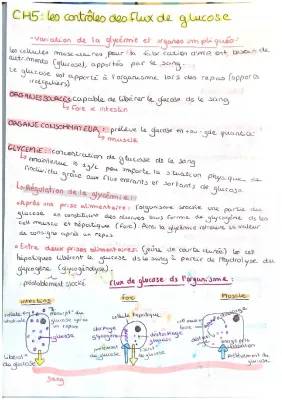 CH5: les contrôles des flux de glucose
- variation de la glycémie et organes impliqués
les cellules musculaires pour la fabrication d'ont besoin de
nutriments (glucose), apportés par le sang.
Le glucose est apporté à l'organisme lors des repas (apports
irréguliers)
ORGANES SOURCES capable de libérer le glucose ds le sang
↳ Foie et intestin
ORGANE CONSOMMATEUR: prélève le glucose en grde quantité
↳ muscle
GLYCEMIE: concentration de glucose de le sang
↳ maintenue à 1g/L peu importe la situation physique de
l'individu grâce aux flux entrants et sortants de glucose
↳ Régulation de la glycémie:
• Après une prise alimentaire: l'organisme stocke une partie du
glucose en constituant des réserves sous forme de glycogène ds les
cell muscle et hépatique (foie). Ainsi la glycémie retrouve sa valeur
de consigne après un repas
• Entre deux prises alimentaires: (jeûne de courte durée) les cell
hépatiques libèrent le glucose ds le sang à partir de l'hydrolyse du
glycogène (glycogénolyse)
préalablement stocké
Flux de glucose ds l'organisme:
intestins
Foie
Muscle
cellule hépatique
glucose
stockage
déstockage
libérat° du glucose
prélèvement du glucose
prélèvement du glucose
Sang